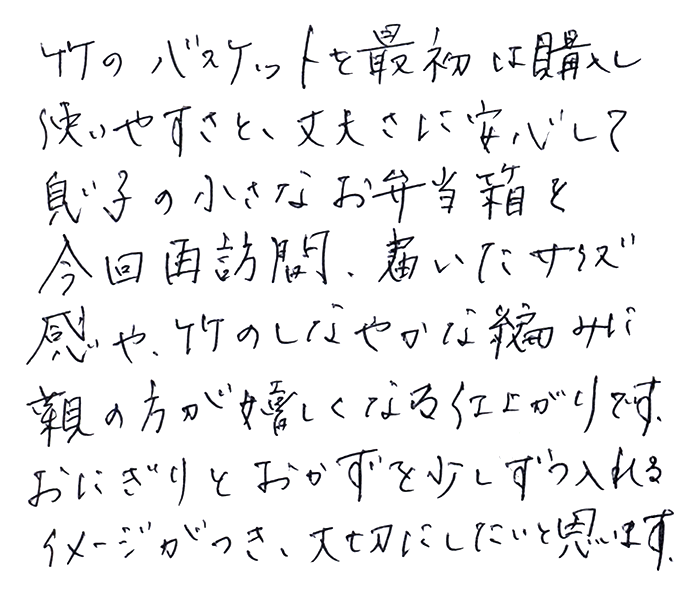 竹のバスケットを最初は購入し
使いやすさと、丈夫さに安心して
息子の小さなお弁当箱を
今回再訪問、届いたサイズ
感や、竹のしなやかな編みに
親の方が嬉しくなる仕上がりです。
おにぎりとおかずを少しずつ入れる
イメージがつき、大切にしたいと思います。